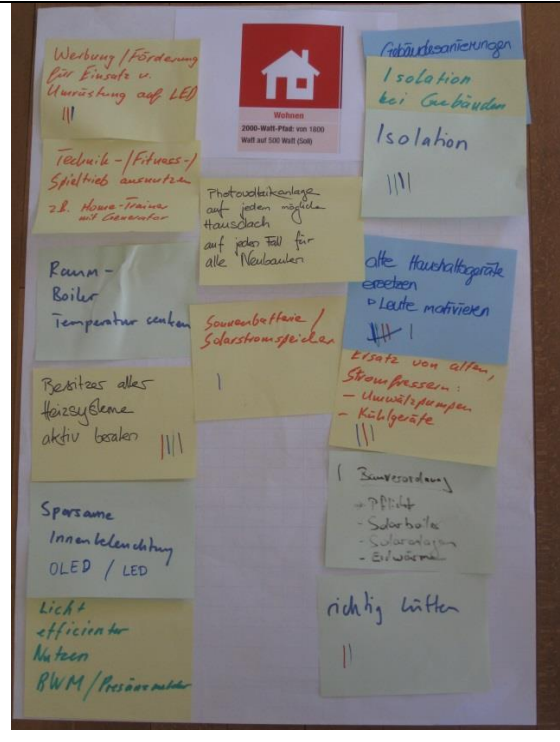 Werbung / Förderung
für Einsatz u.
Umrüstung auf LED
Technik - / Fitness - /
Spieltrieb ausnutzen
z.B. Home-Trainer
mit Generator
Raum -
Boiler
Temperatur senken
Besitzer alter
Heizsysteme
aktiv beraten
Sparsame
Innenbeleuchtung
OLED / LED
Licht
efficienter
Nutzen
BWM /
Wohnen
2000-Watt-Pfad: von 1800
Watt auf 500 Watt (Soll)
Photovoltaikanlage
auf jeden mögliche
Hausdach
auf jeden Fall für
alle Neubauten
Sonnenbatterie /
Solarstromspeicher
Gebäudesanierungen
Isolation
bei Gebäuden
Isolation
alte Haushaltsgeräte
ersetzen
Leute motivieren
Ersatz von alten,
Stromfressern:
- Umwälzpumpen
- Kühlgeräte
Bauverordnung
→ Pflicht
- Solarboiler
- Solaranlagen
- Erdwärme
richtig lüften